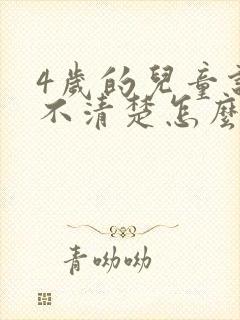 4歲的兒童
不清楚怎麼
青呦呦